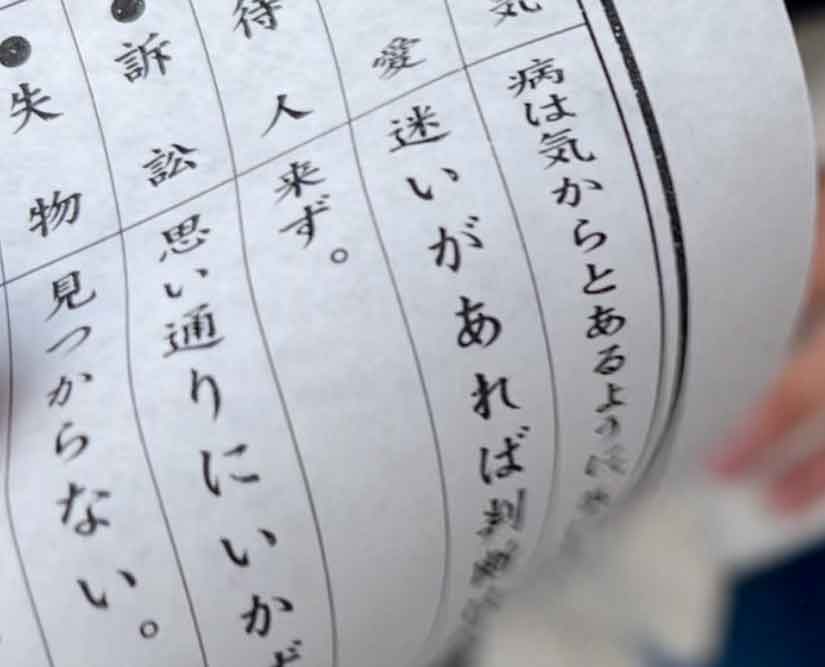 気 病は気からとあるよう
愛 迷いがあれば判
待人 来ず。
訴訟 思い通りにいかず
失物 見つからない。